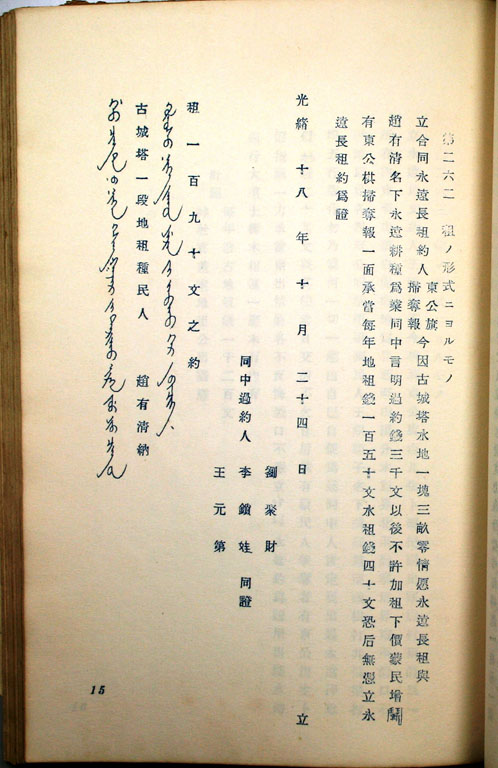 第二六二 租ノ形式ニヨルモノ
立合同永遠長租約人 東公旗 掃奪報 今因古城塔水地一塊三畝零情愿永遠長租與
趙有清名下永遠耕種爲業同中言明過約錢三千文以後不許加租下價蒙民增鬭
有東公棋掃奪報一面承當每年地租錢一百五十文水租錢四十文恐后無憑立永
遠長租約爲證
光緖十八年十月二十四日 立
同中過約人
劉聚財
李鎖娃 同證
王元第
租一百九十文之約
古城塔一段地租種民人 趙有清納
15